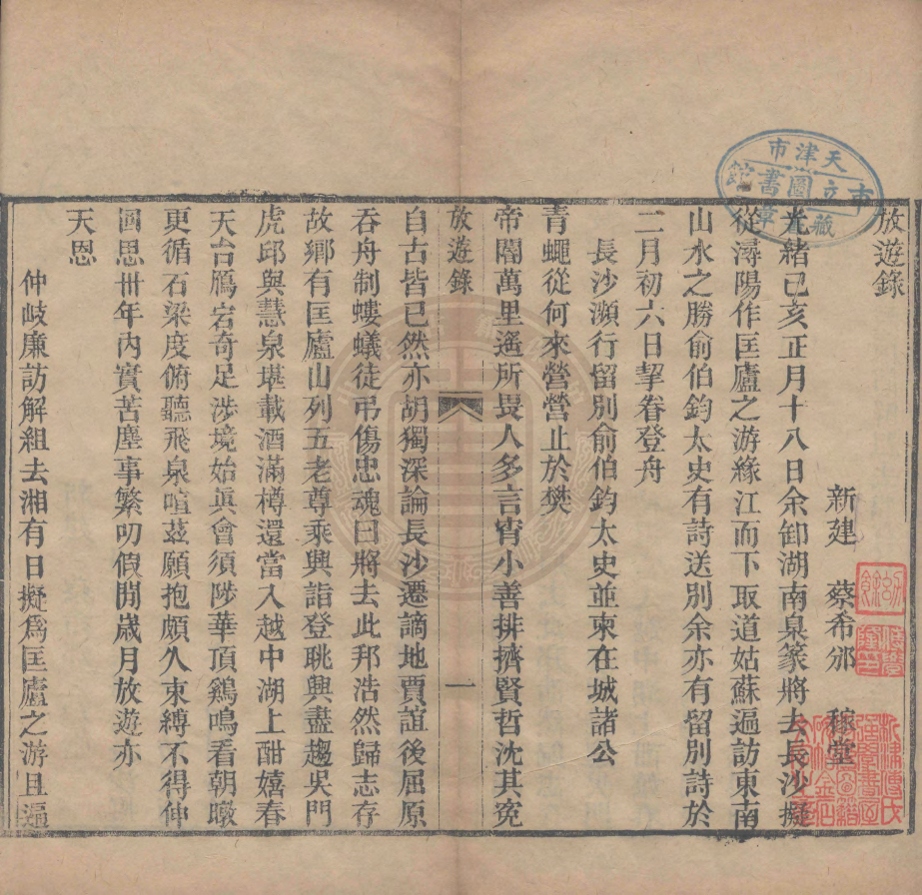 放遊錄
新建 蔡希邠 稼堂
光緒己亥正月十八日余卸湖南臬篆將去長沙擬
從潯陽作匡廬之游緣江而下取道姑蘇遍訪東南
山水之勝俞伯鈞太史有詩送別余亦有留別詩於
二月初六日挈眷登舟
長沙瀕行留別俞伯鈞太史並柬在城諸公
青蠅從何來營營止於樊
帝閽萬里遙所畏人多言宵小善排擠賢哲沈其寃
放遊錄
一
自古皆已然亦胡獨深論長沙遷謫地賈誼後屈原
吞舟制螻蟻徒弔傷忠魂曰將去此邦浩然歸志存
故鄉有匡廬山列五老尊乘興詣登眺興盡趨吳門
虎邱與慧泉堪載酒滿樽還當入越中湖上酣嬉春
天台鴈宕奇足涉境始眞會須陟華頂鷄鳴看朝暾
更循石梁度俯聽飛泉喧茲願抱頗久束縛不得伸
國恩卅年內實苦塵事繁叨假閒歲月放遊亦
天恩
仲岐廉訪解組去湘有日擬爲匡廬之游且遍
天津市
市立圖書館
藏書章